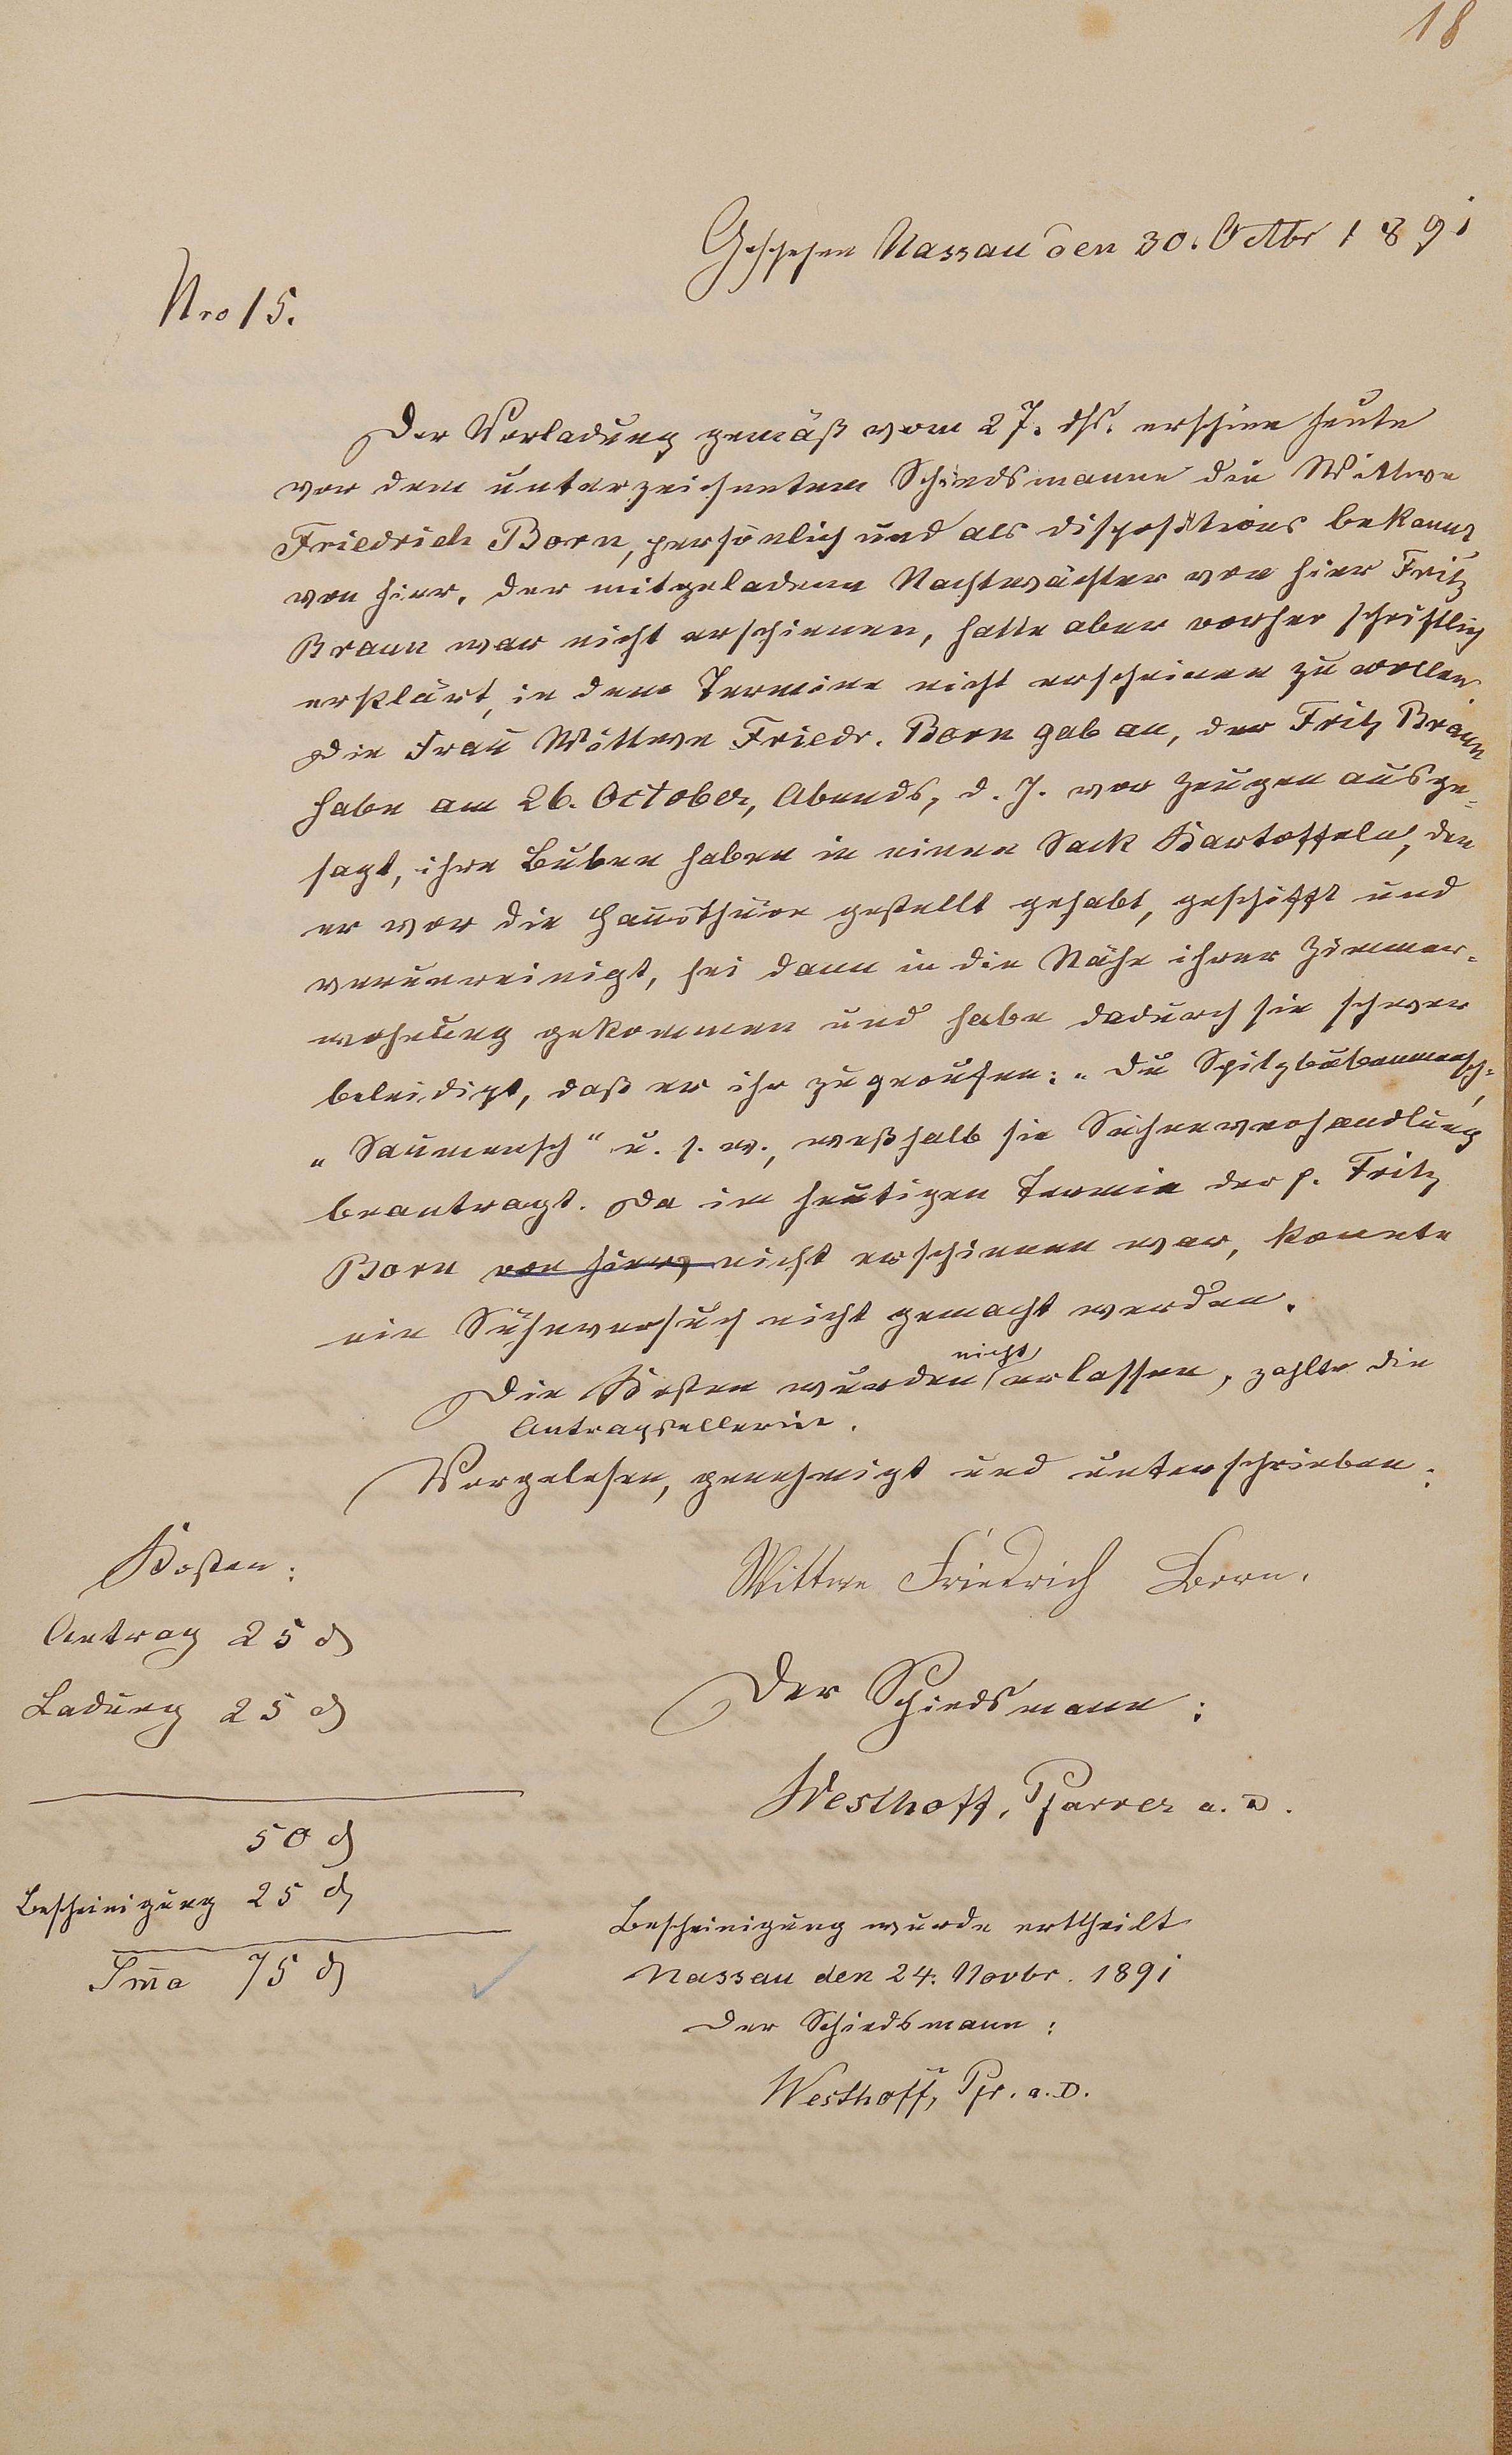 18
Geschehen Nassau den 30. Octbr 1891
Nro 15.
Der Vorladung gemäß vom 27. ds. erschien heute
vor dem unterzeichneten Schiedsmanne die Wittwe
Friedrich Born, persönlich und als dispositions bekannt
von hier. Der mitgeladene Nachtwächter von hier Fritz
Braun war nicht erschienen, hatte aber vorher schriftlich
erklärt, in dem Termine nicht erscheinen zu wollen.
Die Frau Wittwe Friedr. Born gab an, der Fritz Braun
habe am 26. October, Abends, d. J. vor Zeugen ausge-
sagt, ihre Buben haben in einen Sack Kartoffeln, den
er vor die Hausthüre gestellt gehabt, geschifft und
verunreinigt, sei dann in die Nähe ihrer Zimmer-
wohnung gekommen und habe dadurch sie schwer
beleidigt, daß er ihr zugerufen: „Du Spitzbubenmensch,
„Saumensch" u. s. w., weßhalb sie Sühneverhandlung
beantragt. Da im heutigen Termin der p. Fritz
Born von hier, nicht erschienen war, konnte
ein Sühneversuch nicht gemacht werden.
Die Kosten wurden nicht erlassen, zahlte die
Antragstellerin.
Vorgelesen, genehmigt und unterschrieben:
Wittwe Friedrich Born.
Der Schiedsmann:
Westhoff, Pfarrer a. D.
Kosten:
Antrag 25 ₰
Ladung 25 ₰
50 ₰
Bescheinigung 25 ₰
Sm̄a 75 ₰
Bescheinigung wurde erttheilt
Nassau den 24. Novbr. 1891
Der Schiedsmann:
Westhoff, Pfr. a. D.